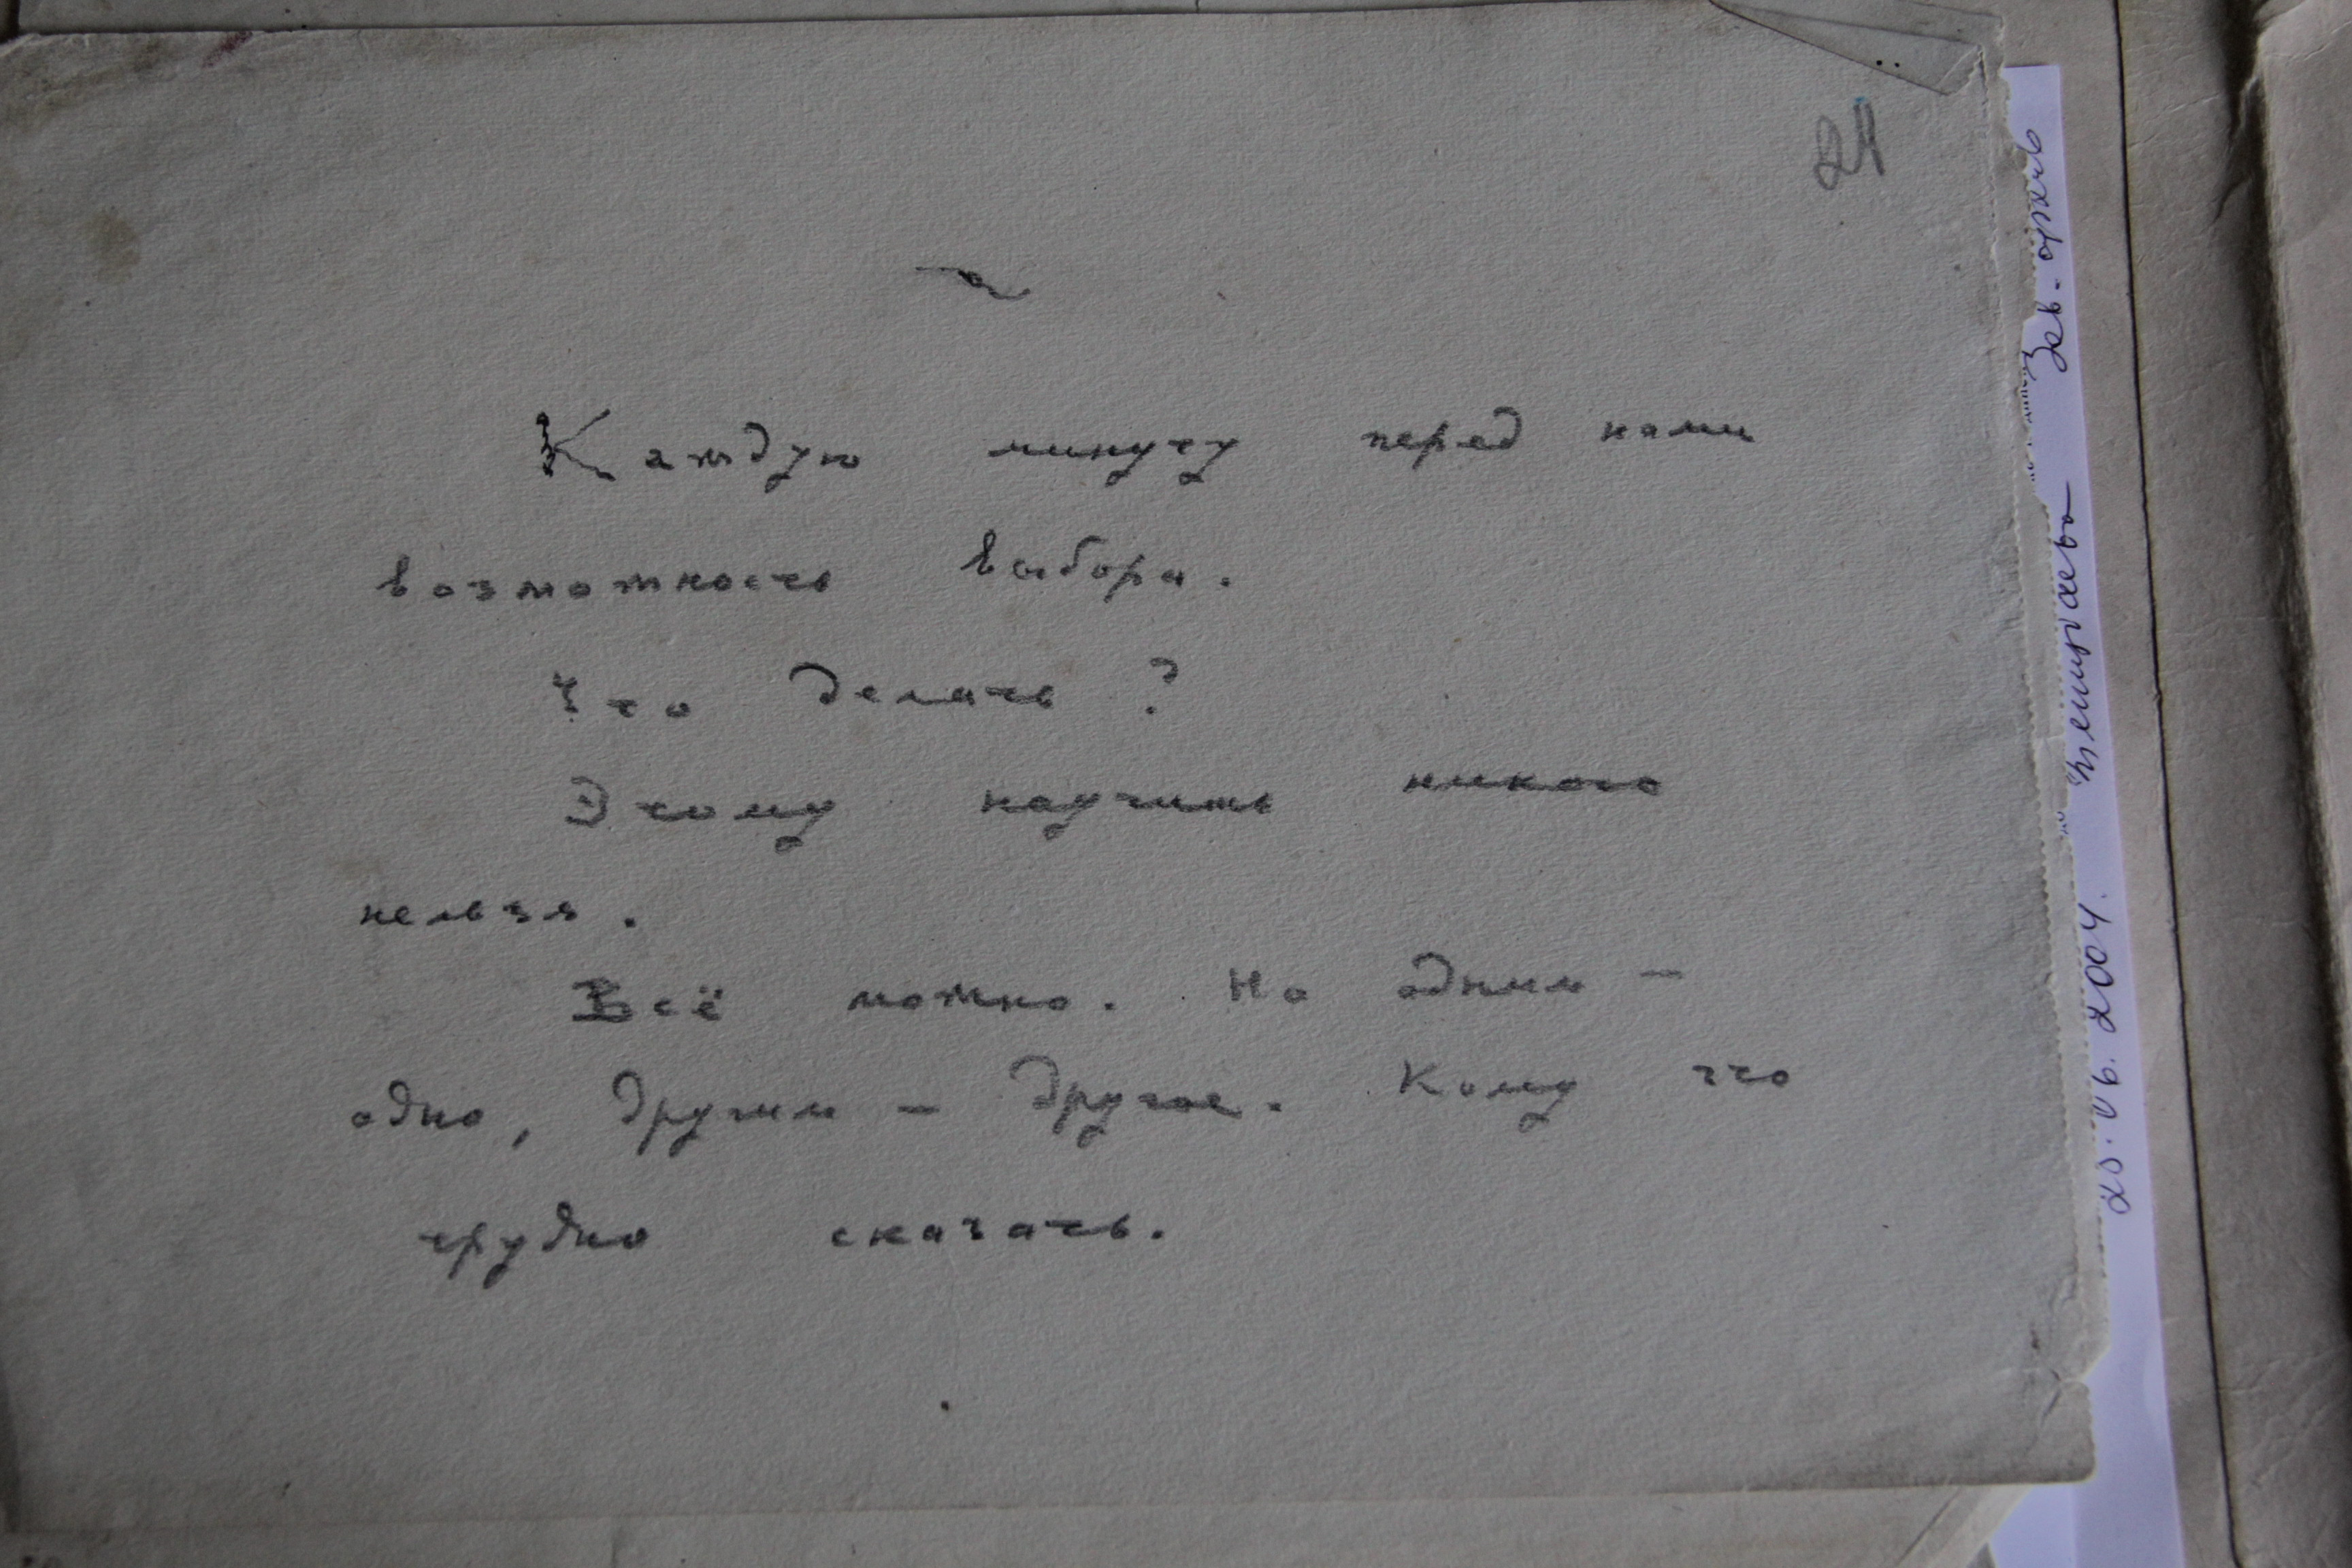 21
Каждую минуту перед нами
возможность выбора.
Что делать?
Этому научить никого
нельзя.
Всё можно. Но одним —
одно, другим — другое. Кому что
трудно сказать.
Зав. архив
20.VI. 2004.